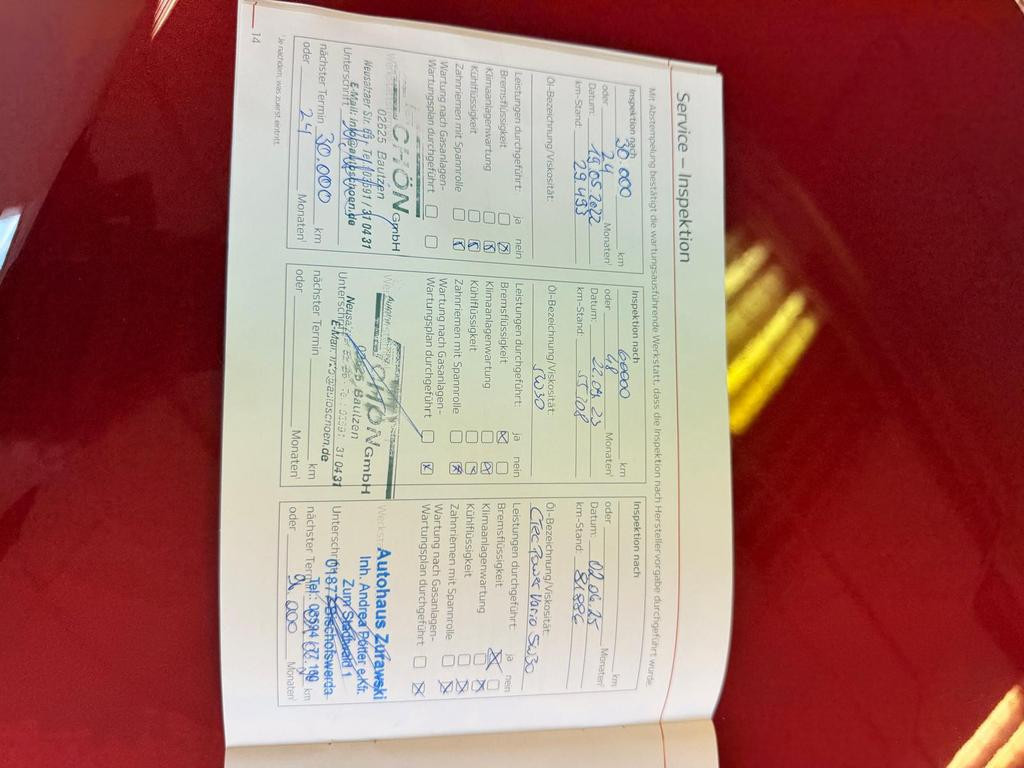 Service – Inspektion
Mit Abstempelung bestätigt die wartungsausführende Werkstatt, dass die Inspektion nach Herstellervorgabe durchgeführt wurde.
Inspektion nach
30.000 km
oder 24 Monaten¹
Datum: 19.05.2022
km-Stand: 29.493
Öl-Bezeichnung/Viskosität:
Leistungen durchgeführt: ja nein
Bremsflüssigkeit
Klimaanlagenwartung
Kühlflüssigkeit
Zahnriemen mit Spannrolle
Wartung nach Gasanlagen-
Wartungsplan durchgeführt
CHÖN GmbH
02625 Bautzen
Neusalzaer Str. 63 · Tel. 03591 / 31 04 31
E-Mail: info@autoschoen.de
Unterschrift
nächster Termin 30.000 km
oder 24 Monaten¹
Inspektion nach
60000 km
oder 48 Monaten¹
Datum: 22.09.23
km-Stand: 55108
Öl-Bezeichnung/Viskosität:
5W30
Leistungen durchgeführt: ja nein
Bremsflüssigkeit
Klimaanlagenwartung
Kühlflüssigkeit
Zahnriemen mit Spannrolle
Wartung nach Gasanlagen-
Wartungsplan durchgeführt
CHÖN GmbH
02625 Bautzen
31 04 31
autoschoen.de
Unterschrift
nächster Termin km
oder Monaten¹
Inspektion nach
km
oder Monaten¹
Datum: 02.04.25
km-Stand: 81.886
Öl-Bezeichnung/Viskosität:
Power Vario 5W30
Leistungen durchgeführt: ja nein
Bremsflüssigkeit
Klimaanlagenwartung
Kühlflüssigkeit
Zahnriemen mit Spannrolle
Wartung nach Gasanlagen-
Wartungsplan durchgeführt
Autohaus Zurawski
Inh. Andrea Potter e.Kfr.
Zum Stadtwald 1
01877 Bischofswerda
Tel.: 03594 77 100
nächster Termin km
oder Monaten¹
¹ Je nachdem, was zuerst eintritt.
14